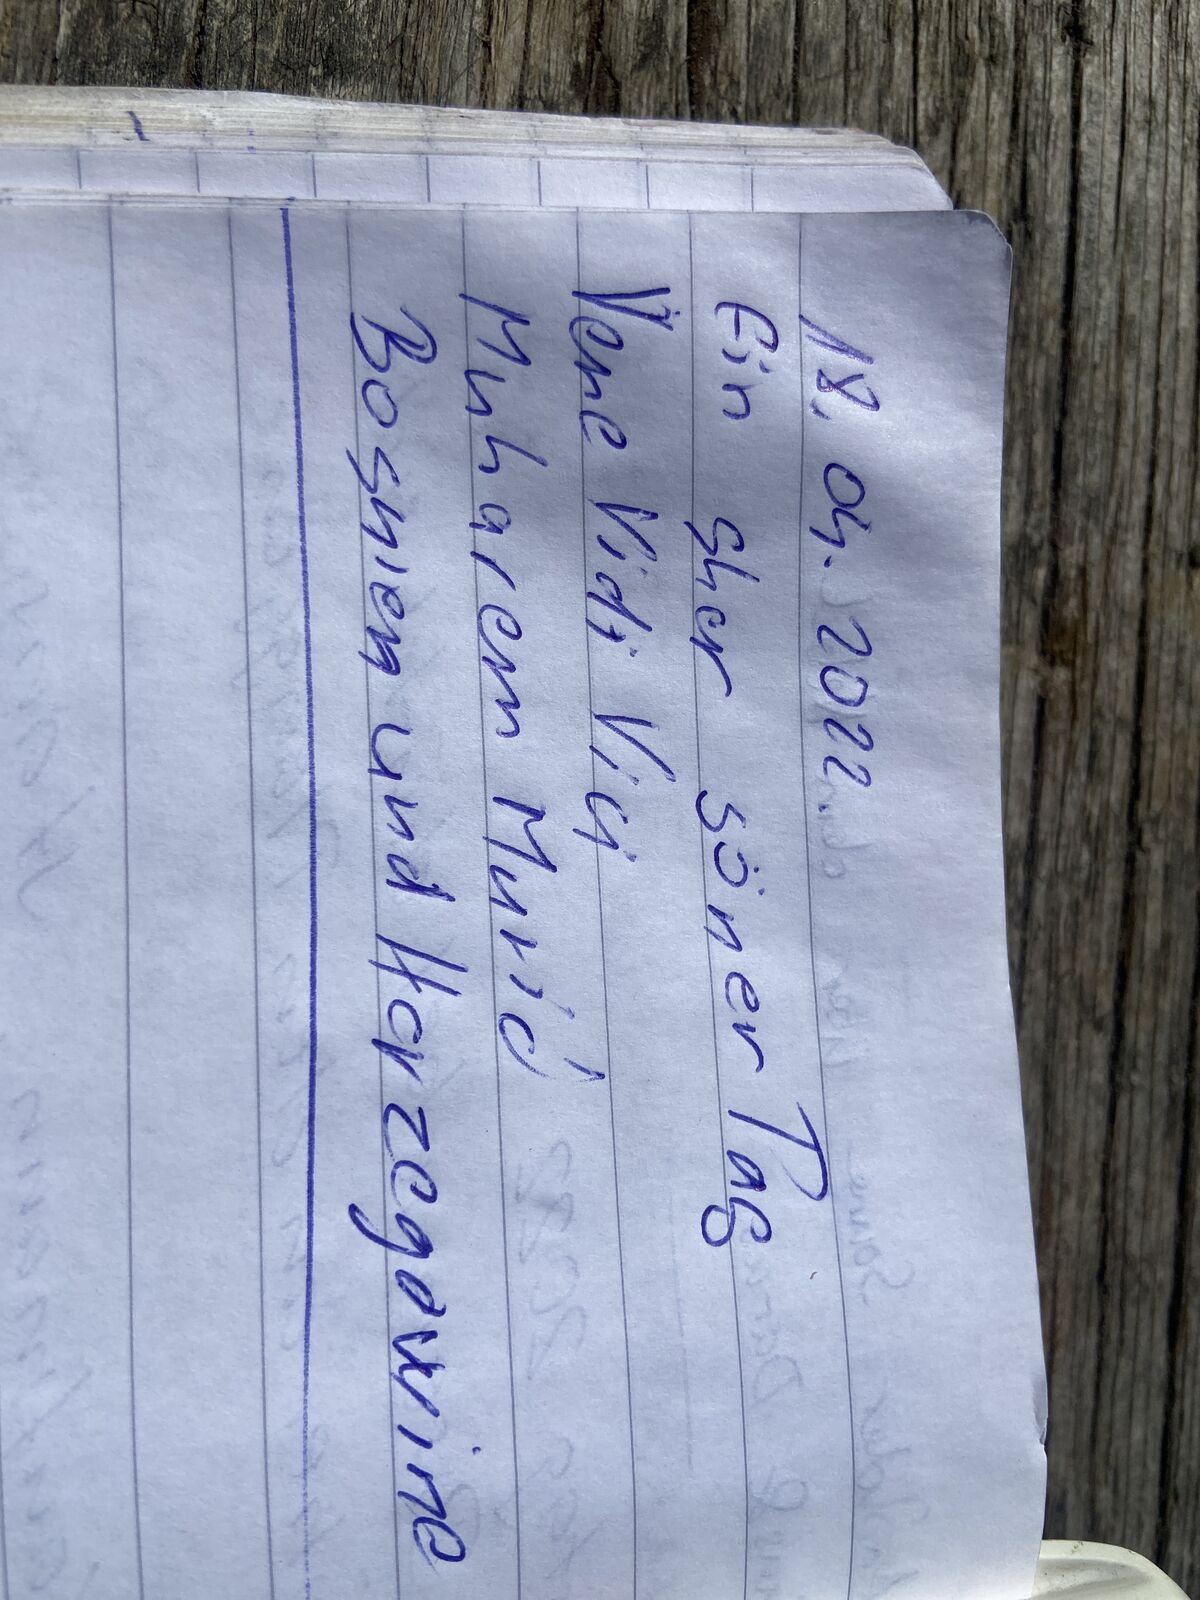 18. 04. 2022.
Ein sher söner Tag
Vene Vidi Vici
Muharem Munić
Bosnien und Herzegowine